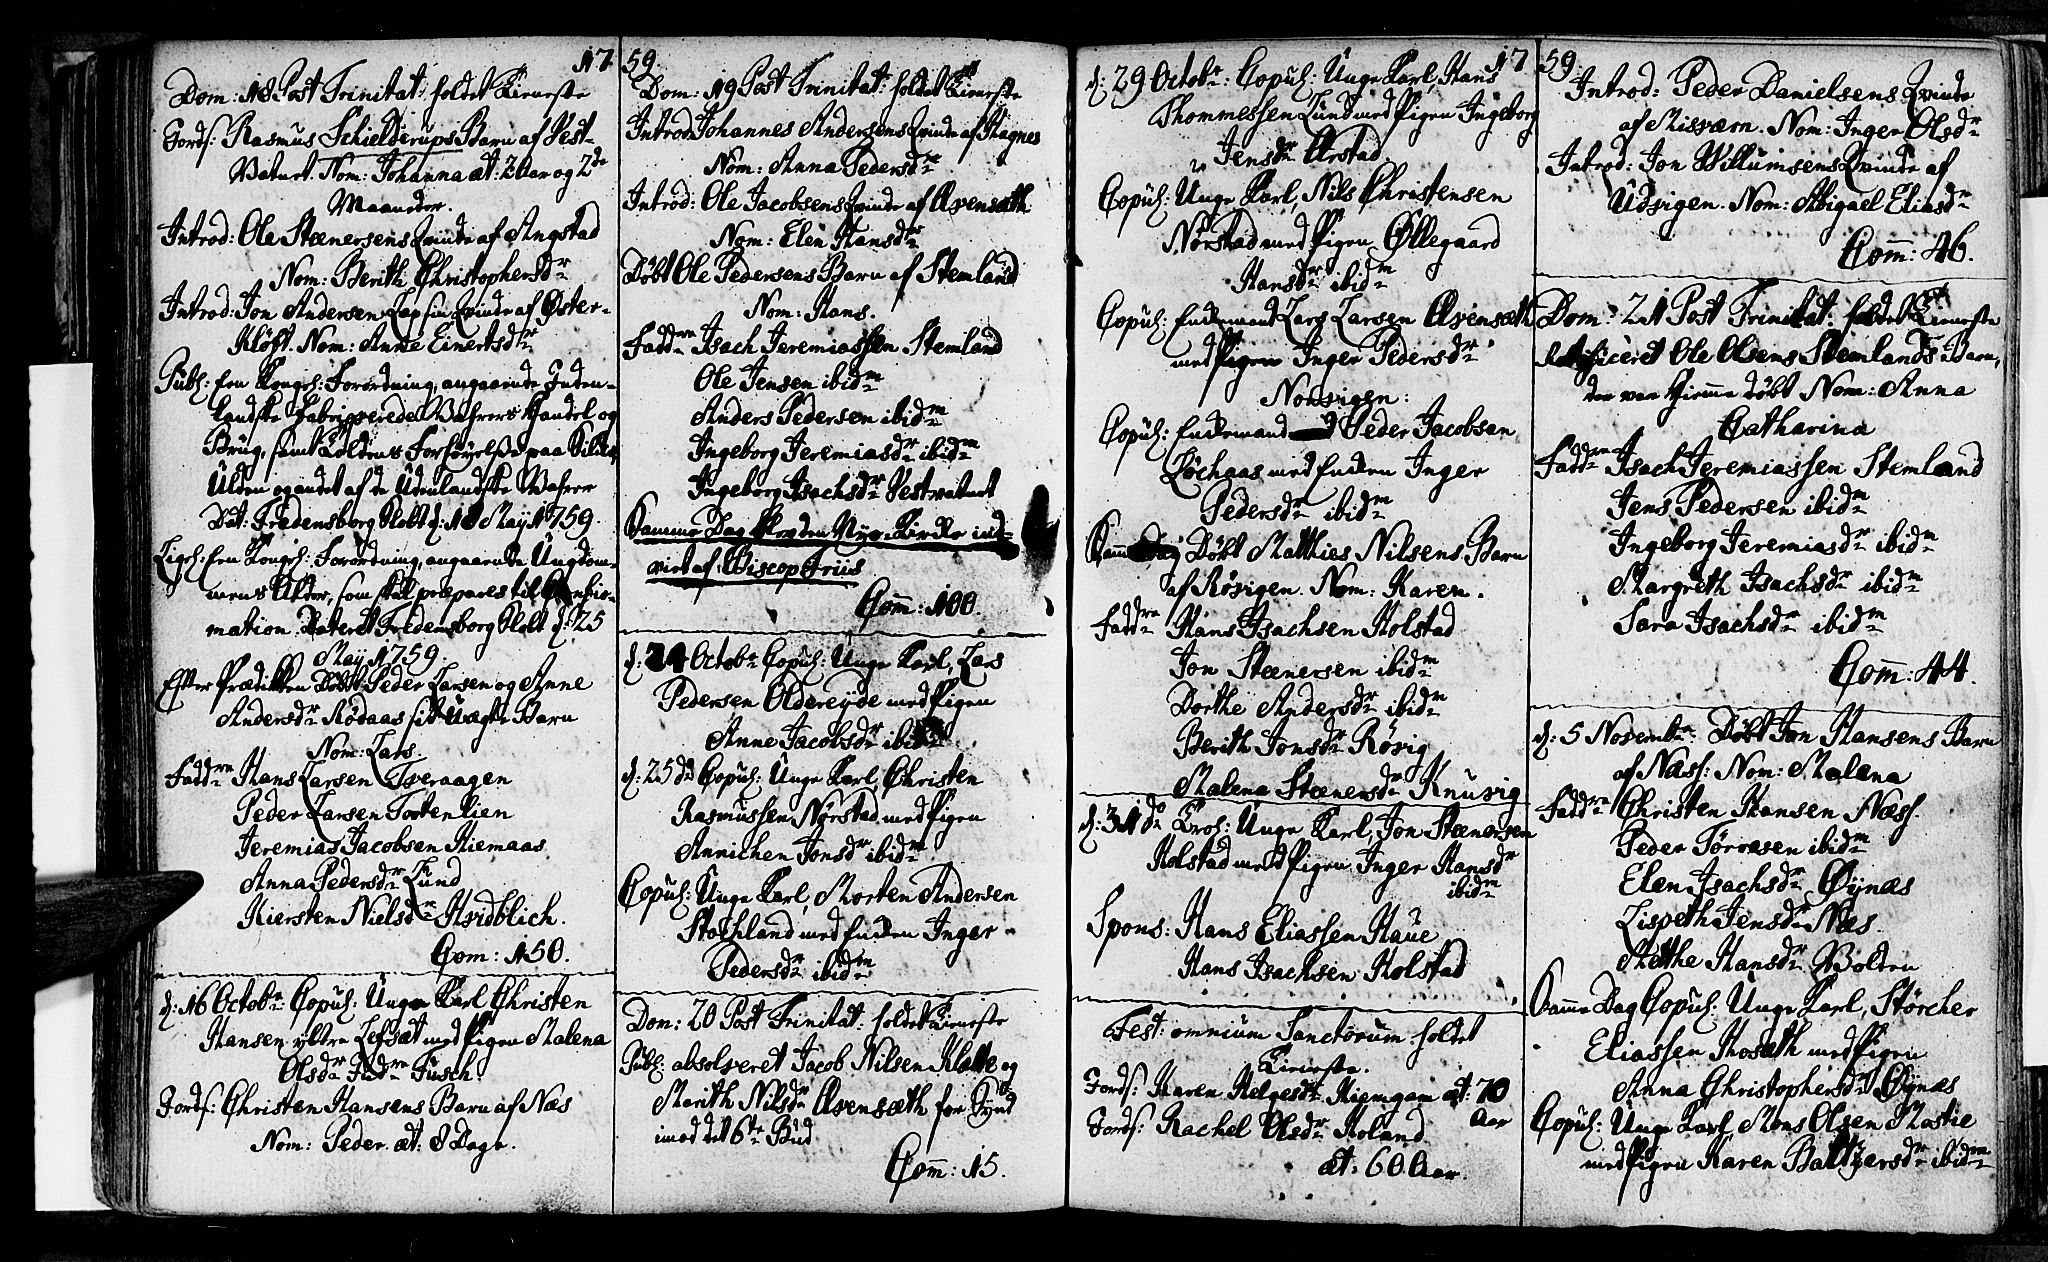 17
Dom: 18 Post Trinitat: holdet Tieneste
Jords: Rasmus Schielderups Barn af Vest-
Vatnet. Nom: Johanna æt: 2 Aar og 2de
Maaneder.
Introd: Ole Steenersens Qvinde af Angstad
Nom: Berith Christophersdr
Introd: Jon Andersen Lap sin Qvinde af Øster-
Kløft. Nom: Anne Einertsdr
Publ: Een Kongel: Forordning, angaaende Inden-
landske Fabriqverede Wahrers Handel og
Brug, samt Toldens Forhøyelse paa Silke,
Ulden og andet af de Udenlandske Wahrer
Dat: Fredensborg Slott d: 18 May 1759.
Ligel: Een Kongel: Forordning, angaaende Ungdom-
mens Alder, som skal præpares til Confir-
mation. Dateret Fredensborg Slott d: 25
May 1759.
Efter Prædiken Døbt Peder Larsen og Anne
Andersdr Rødaas sit Uægte Barn
Nom: Lars.
Faddre Hans Larsen Tveraagen
Peder Larsen Tortenlien
Jeremias Jacobsen Hiemaas
Anna Pedersdr Lund
Kiersten Nielsdr Hvidblich.
Com: 150.
d: 16 Octobr Copul: Unge Karl Christen
Hansen yttre Lefsæt med Pigen Malena
Olsdr Fusch.
Jords: Christen Hansens Barn af Næs
Nom: Peder æt: 8 Dage.
59
Dom: 19 Post Trinitat: holdet Tieneste
Introd: Johannes Andersens Qvinde af Hagnes
Nom: Anna Pedersdr
Introd: Ole Jacobsens Qvinde af Alvenæsth
Nom: Elen Hansdr
Døbt Ole Pedersens Barn af Stemland
Nom: Hans.
Faddre Isach Jeremiassen Stemland
Ole Jensen ibidm
Anders Pedersen ibidm
Ingeborg Jeremiasdr ibidm
Ingeborg Isachsdr Vestvatnet
Samme Dag blev den Nye Kirke ind-
viet af Biscop Friis
Com̅: 100.
d: 24 Octobr Copul: Unge Karl, Lars
Pedersen Oldereyde med Pigen
Anne Jacobsdr ibidm
d: 25 do Copul: Unge Karl, Christen
Rasmussen Nørstad med Pigen
Annichen Jonsdr ibidm
Copul: Unge Karl, Morten Andersen
Stochland med Enken Inger
Pedersdr ibidm
Dom: 20 Post Trinitat: holdet Tieneste
Publ: absolveret Jacob Nilsen Klætte og
Marith Nilsdr Alvensæth for Synd
imod det 6te Bud
Com̅: 15.
17
d: 29 Octobr: Copul: Unge Karl, Hans
Thommessen Lund med Pigen Ingeborg
Jensdr Arstad
Copul: Unge Karl, Nils Christensen
Nørstad med Pigen Øllegaard
Hansdr ibidm
Copul: Enkemand Lars Larsen Alvensæth
med Pigen Inger Pedersdr
Norvigen:
Copul: Enkemand Peder Jacobsen
Løchaas med Enken Inger
Pedersdr ibidm
Samme Dag Døbt Matthies Nilsens Barn
af Røsvigen. Nom: Karen.
Faddre Hans Isachsen Holstad
Jon Steenersen ibidm
Dorthe Andersdr ibidm
Berith Jonsdr Røsvig
Malena Steenersdr Knusvig
d: 31 do Trol: Unge Karl, Jon Steenersen
Holstad med Pigen Inger Hansdr
ibidm
Spons: Hans Eliassen Haue
Hans Isachsen Holstad
Fest: omnium Sanctorum holdet
Tieneste.
Jords: Karen Helgesdr Hiemgam æt: 70
Aar
Jords: Rachel Olsdr Holand
æt: 60 Aar.
59
Introd: Peder Danielsens Qvinde
af Misværn. Nom: Inger Olsdr
Introd: Jon Willumsens Qvinde af
Udvigen. Nom: Abigael Eliasdr
Com̅: 46.
Dom: 21 Post Trinitat: holdet Tieneste
Ratificeret Ole Olsens Stemlands Barn,
der var hiemme døbt Nom: Anna
Catharina
Faddre Isach Jeremiassen Stemland
Jens Pedersen ibidm
Ingeborg Jeremiasdr ibidm
Margreth Isachsdr ibidm
Sara Isachsdr ibidm
Com̅: 44.
d: 5 Novembr Døbt Jon Hansens Barn
af Næss: Nom: Malena
Faddre Christen Hansen Næss.
Peder Torresen ibidm
Elen Isachsdr Øynæs
Lispeth Jensdr Næs.
Methe Hansdr Bolden
Samme Dag Copul: Unge Karl, Störcher
Eliassen Hosæth med Pigen
Anna Christophersdr Øynæs
Copul: Unge Karl, Mons Olsen Mostie
med Pigen Karen Baltzersdr ibidm